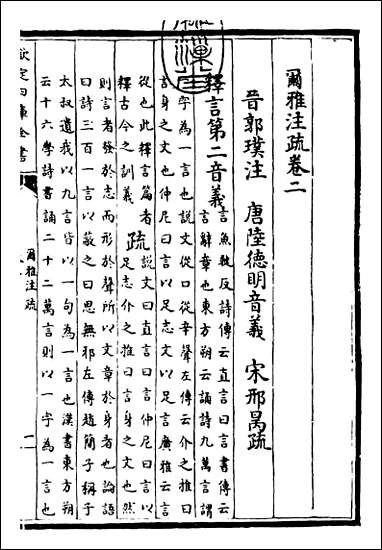 爾雅注疏卷二
晉郭璞注 唐陸德明音義 宋邢昺疏
釋言第二音義
言魚反詩傳云直言曰言書傳云
言辭章也東方朔云誦詩九萬言謂
一字為一言也說文從口從辛聲左傳云介之推曰
言身之文也仲尼曰言以足志文以足言廣雅云言
從也此釋言篇者
釋古今之訓義
疏
說文曰直言曰言仲尼曰言以
足志介之推曰言身之文也然
則言者發於志而形於聲所以文章於身者也論語
曰詩三百一言以蔽之曰思無邪左傳趙簡子稱子
太叔遺我以九言皆以一句為一言也漢書東方朔
云十六學詩書誦二十二萬言則以一字為一言也
欽定四庫全書
爾雅注疏
一